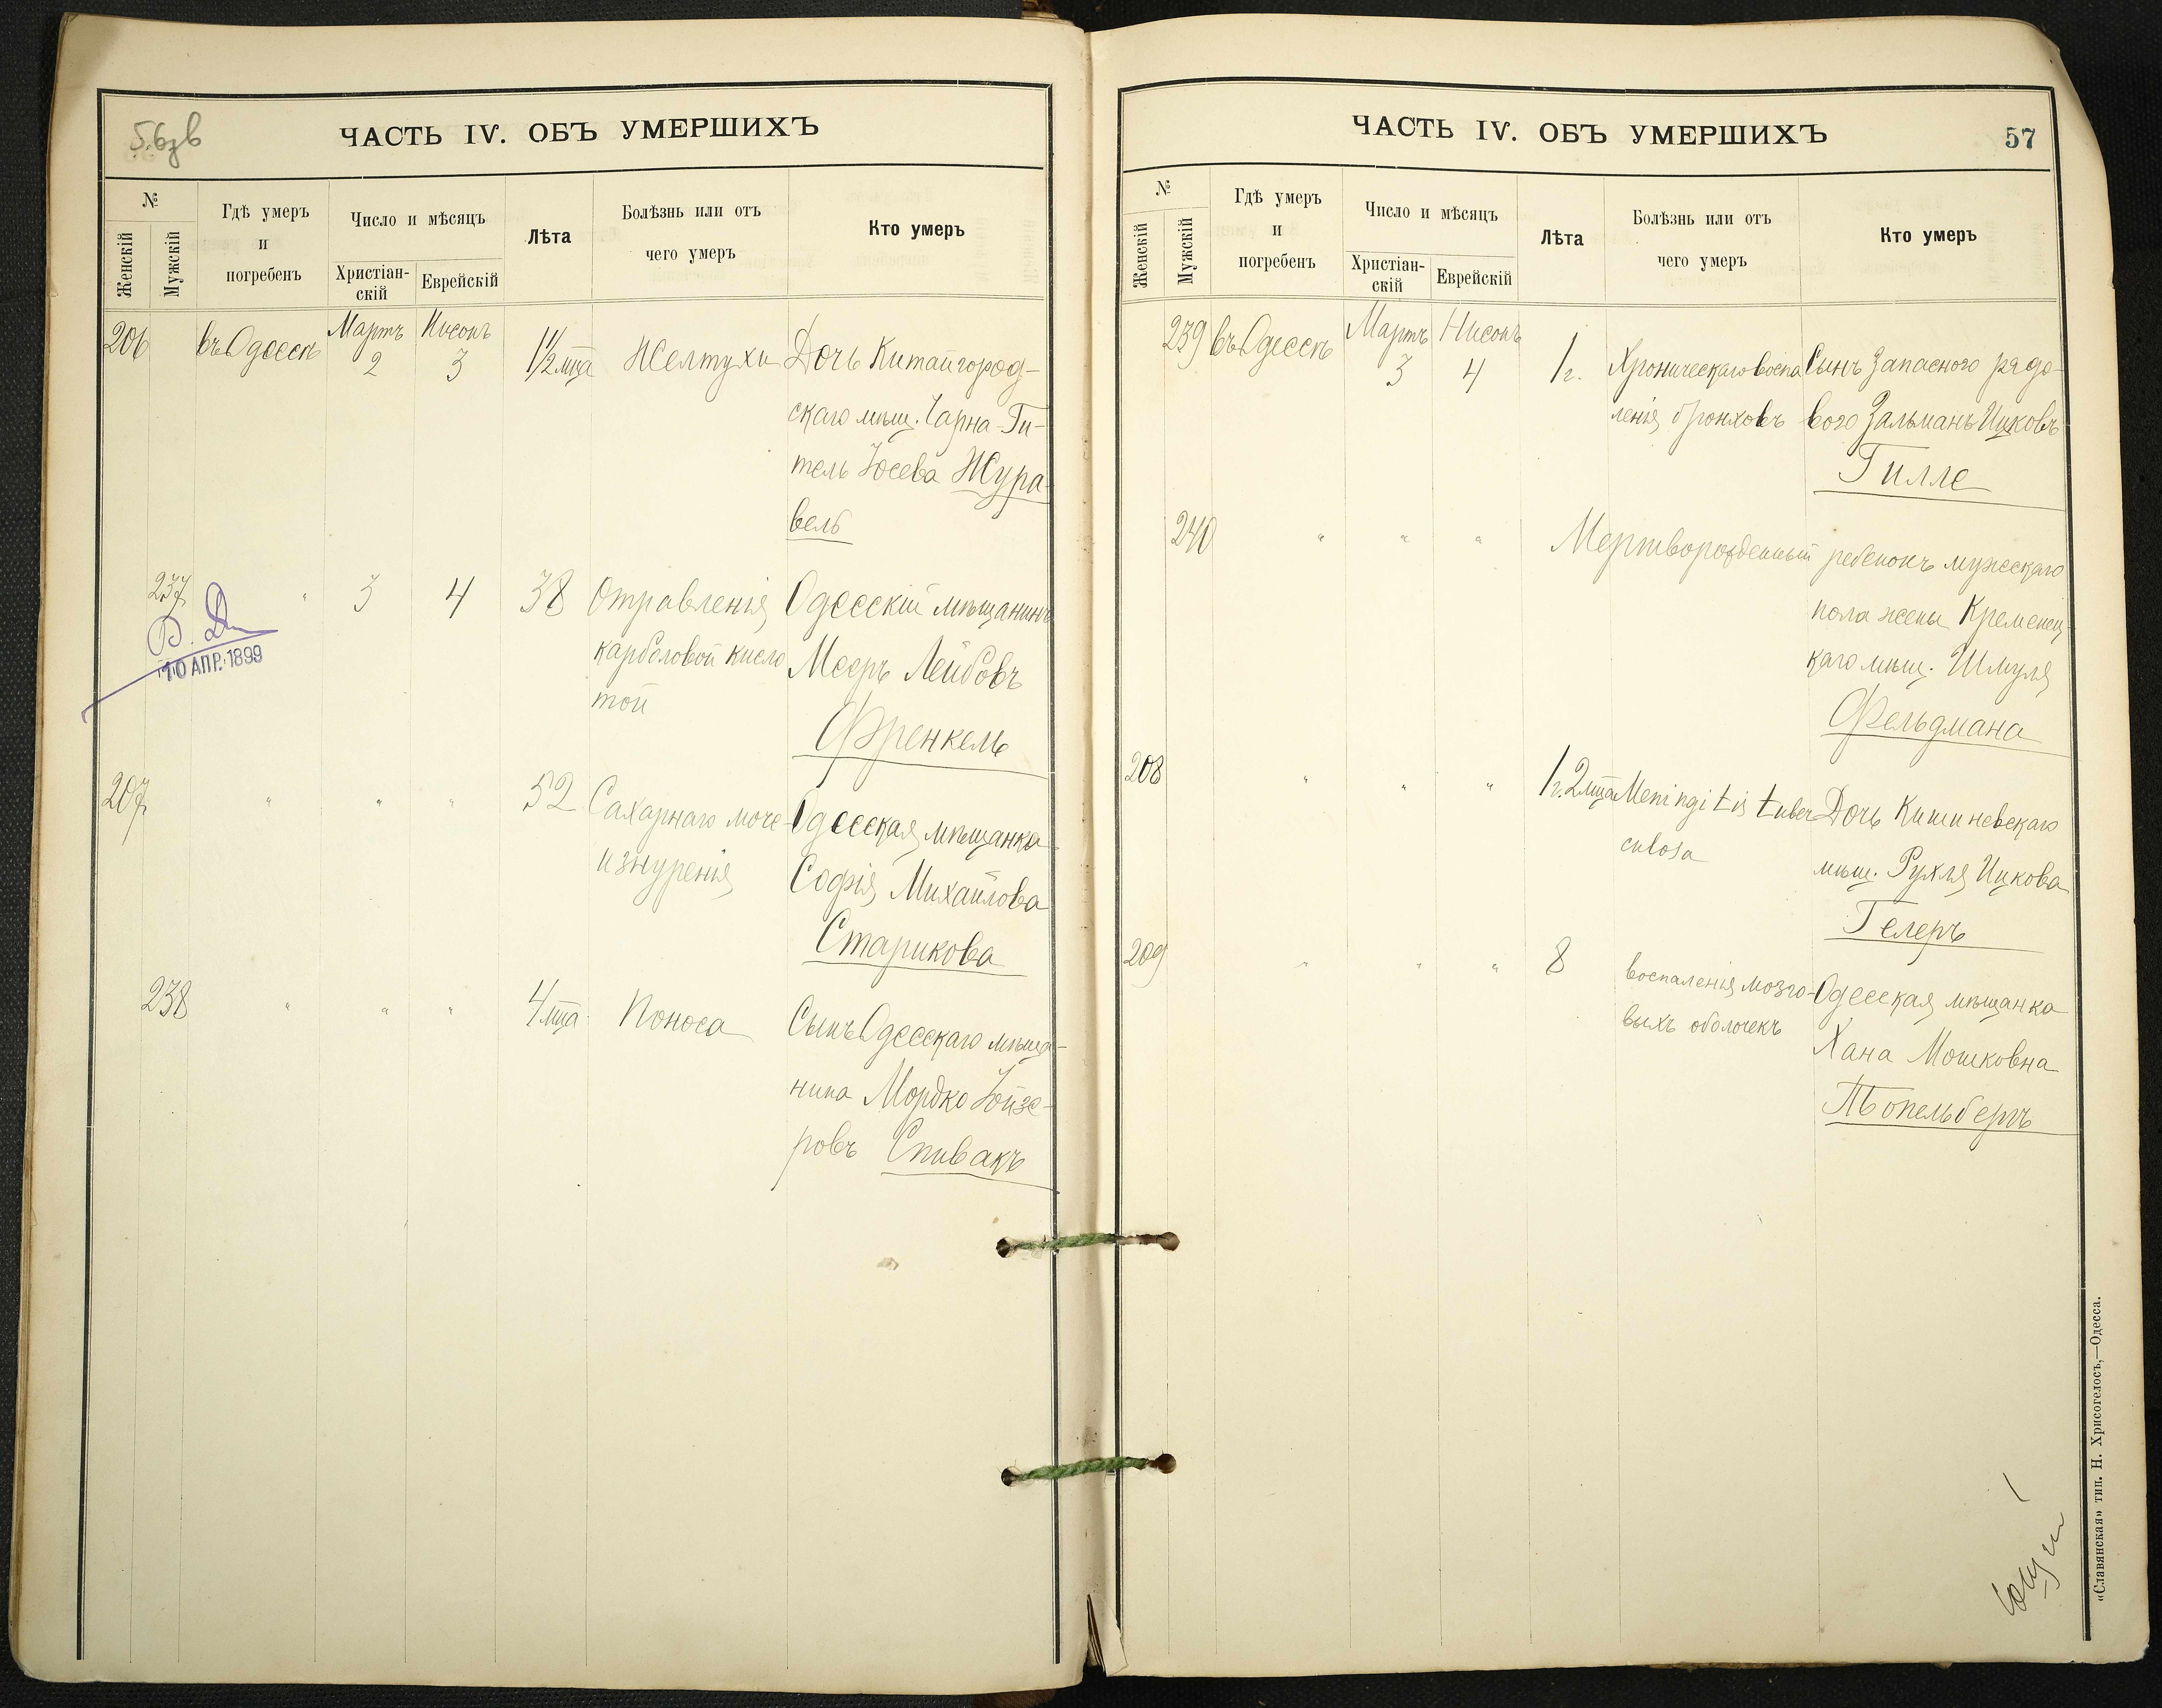 56зв
ЧАСТЬ IV. ОБЪ УМЕРШИХЪ
№
Женскій
Мужскій
Гдѣ умеръ
и
погребенъ
Число и мѣсяцъ
Христіан-
скій
Еврейскій
Лѣта
Болѣзнь или отъ
чего умеръ
Кто умеръ
206 въ Одессѣ Мартъ 2 Нисонъ 3 1½ мца Желтухи Дочь Китайгород-
скаго мѣщ. Чарна-Ги-
тель Іосева Жура
вель
237 " 3 4 38 Отравленія Одесскій мѣщанинъ
карболовой кисло Мееръ Лейбовъ
той
Френкель
10 АПР. 1899
207 " " " 52 Сахарнаго моче- Одесская мѣщанка
изнуренія Софія Михайлова
Старикова
238 " " " 4 мца Поноса Сынъ Одесскаго мѣща-
нина Мордко Іойзе-
ровъ Спивакъ
ЧАСТЬ IV. ОБЪ УМЕРШИХЪ
57
№
Женскій
Мужскій
Гдѣ умеръ
и
погребенъ
Число и мѣсяцъ
Христіан-
скій
Еврейскій
Лѣта
Болѣзнь или отъ
чего умеръ
Кто умеръ
239 въ Одессѣ Мартъ 3 Нисонъ 4 1 г. Хроническаго воспа Сынъ Запасного рядо-
ленія бронховъ вого Зальманъ Ицковъ
Гилле
240 " " " Мертворожденный ребенокъ мужескаго
пола жены Кременец-
каго мѣщ. Шмуля
Фельдмана
208 " " " 1 г. 2 мца Meningitis tuber Дочь Кишиневскаго
culosa мѣщ. Рухля Ицкова
Гелеръ
209 " " " 8 воспаленія мозго- Одесская мѣщанка
выхъ оболочекъ Хана Мошковна
Топельбергъ
«Славянская» тип. Н. Хрисогелосъ,—Одесса.